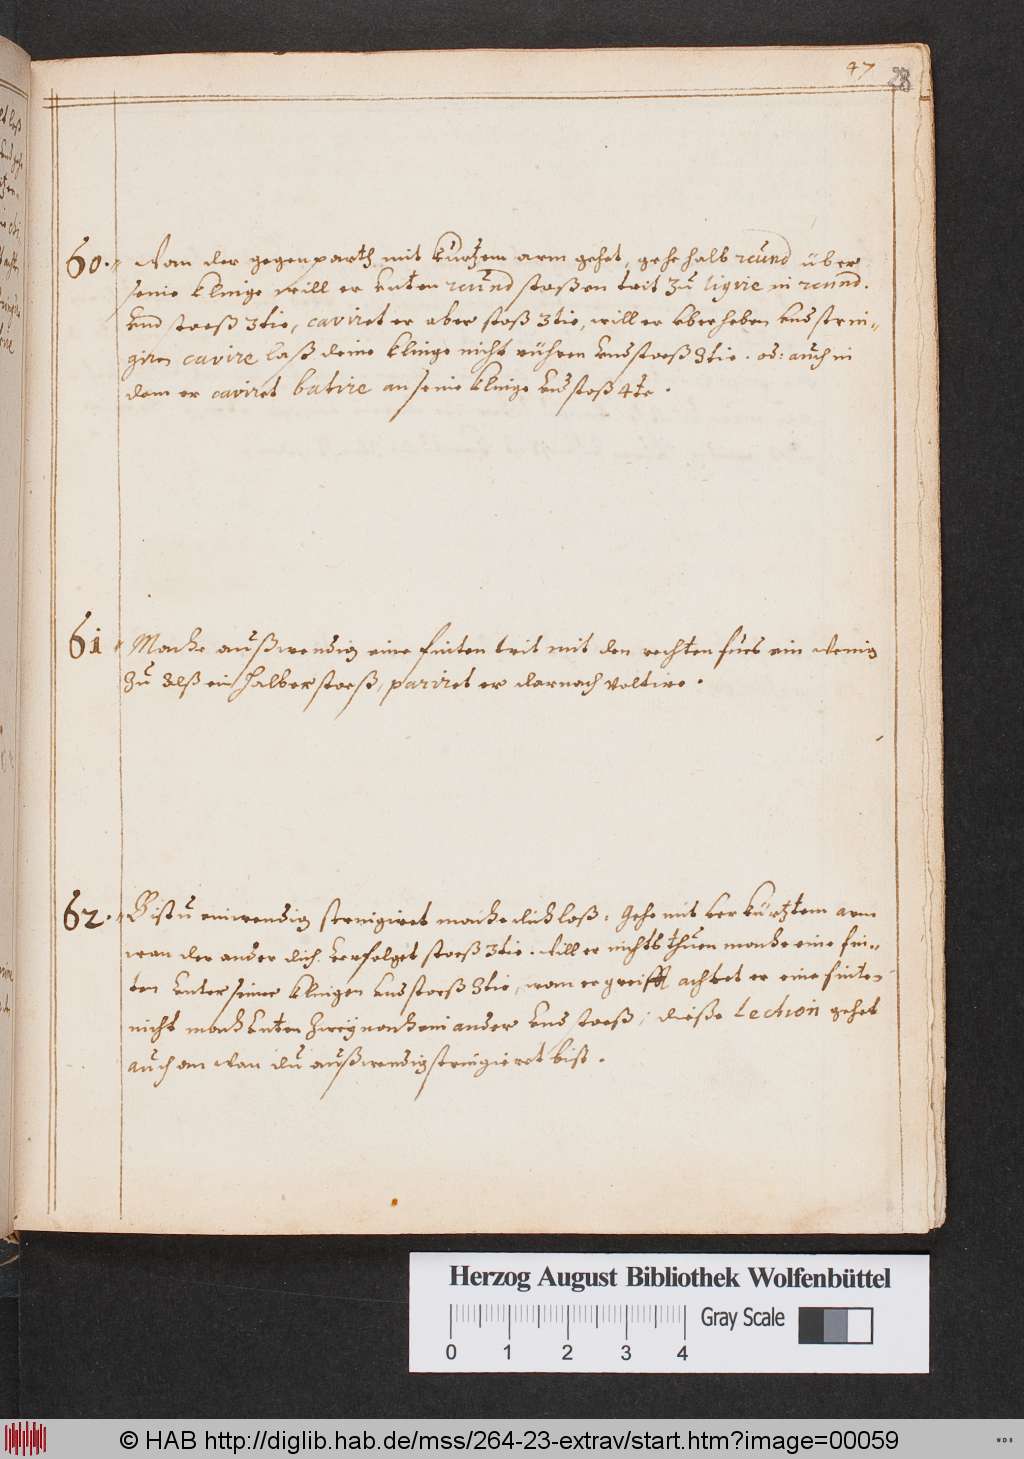 47
28
60. Wan der gegenparth mit kurtzem arm gehet, gehe halb round über
seine klinge will er unten round stoßen trit zu ligire in round.
und stoeß 3tie, caviret er aber stoß 3tie, will er überheben und strin-
giren cavire laß deine klinge nicht rühren und stoeß 3tie. od: auch in
dem er caviret batire an seine klinge und stoß 4te.
61 Mache außwendig eine finten trit mit den rechten fues ein wenig
zu alß ein halber stoeß, pariret er darnach voltire.
62. Bistu einwendig stringiret mache dich loß, Gehe mit verkürtztem arm
wan der ander dich verfolget stoeß 3tie. will er nichts thuen mache eine fin-
ten unter seiner klingen und stoeß 3tie, wan er greifft achtet er eine finte
nicht mach unten zwey nach einander und stoeß, dieße Lection gehet
auch an wan du außwendig stringieret bist.
Herzog August Bibliothek Wolfenbüttel
0 1 2 3 4
Gray Scale
© HAB http://diglib.hab.de/mss/264-23-extrav/start.htm?image=00059